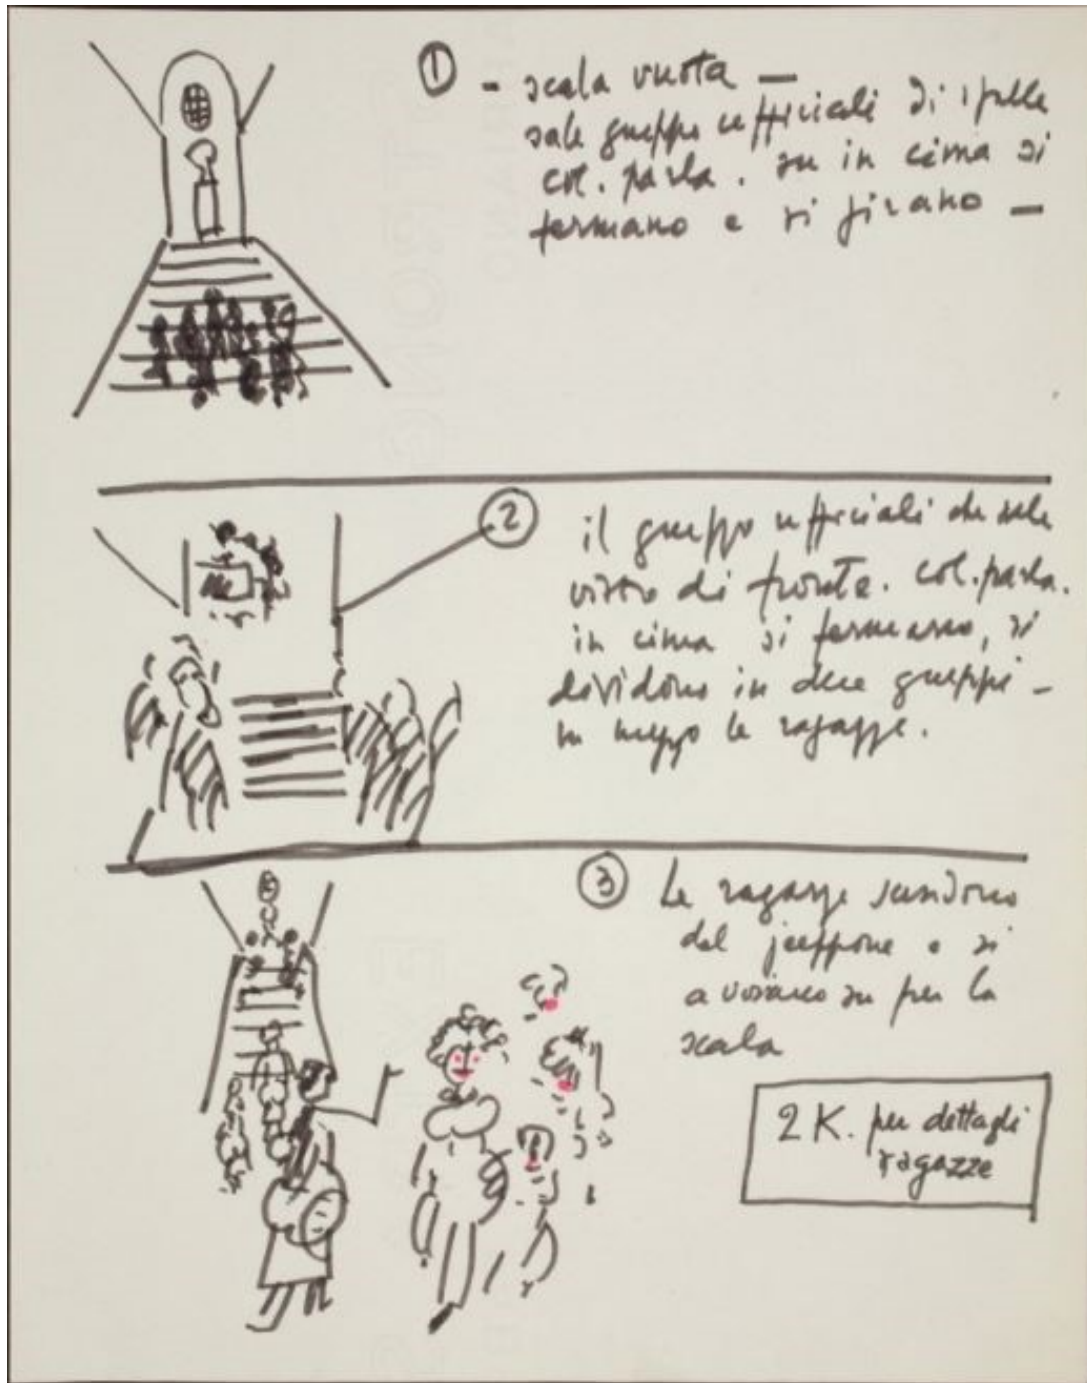 ① - scala vuota —
sale gruppo ufficiali di spalle
col. parla. su in cima si
fermano e si girano —
② il gruppo ufficiali che sale
visto di fronte. col. parla.
in cima si fermano, si
dividono in due gruppi -
in mezzo le ragazze.
③ Le ragazze scendono
dal jeeppone e si
avviano su per la
scala
2 K. per dettagli
ragazze